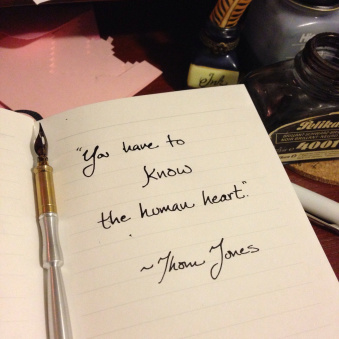 "You have to
know
the human heart."
~Thom Jones
Ink
Pelikan
4001